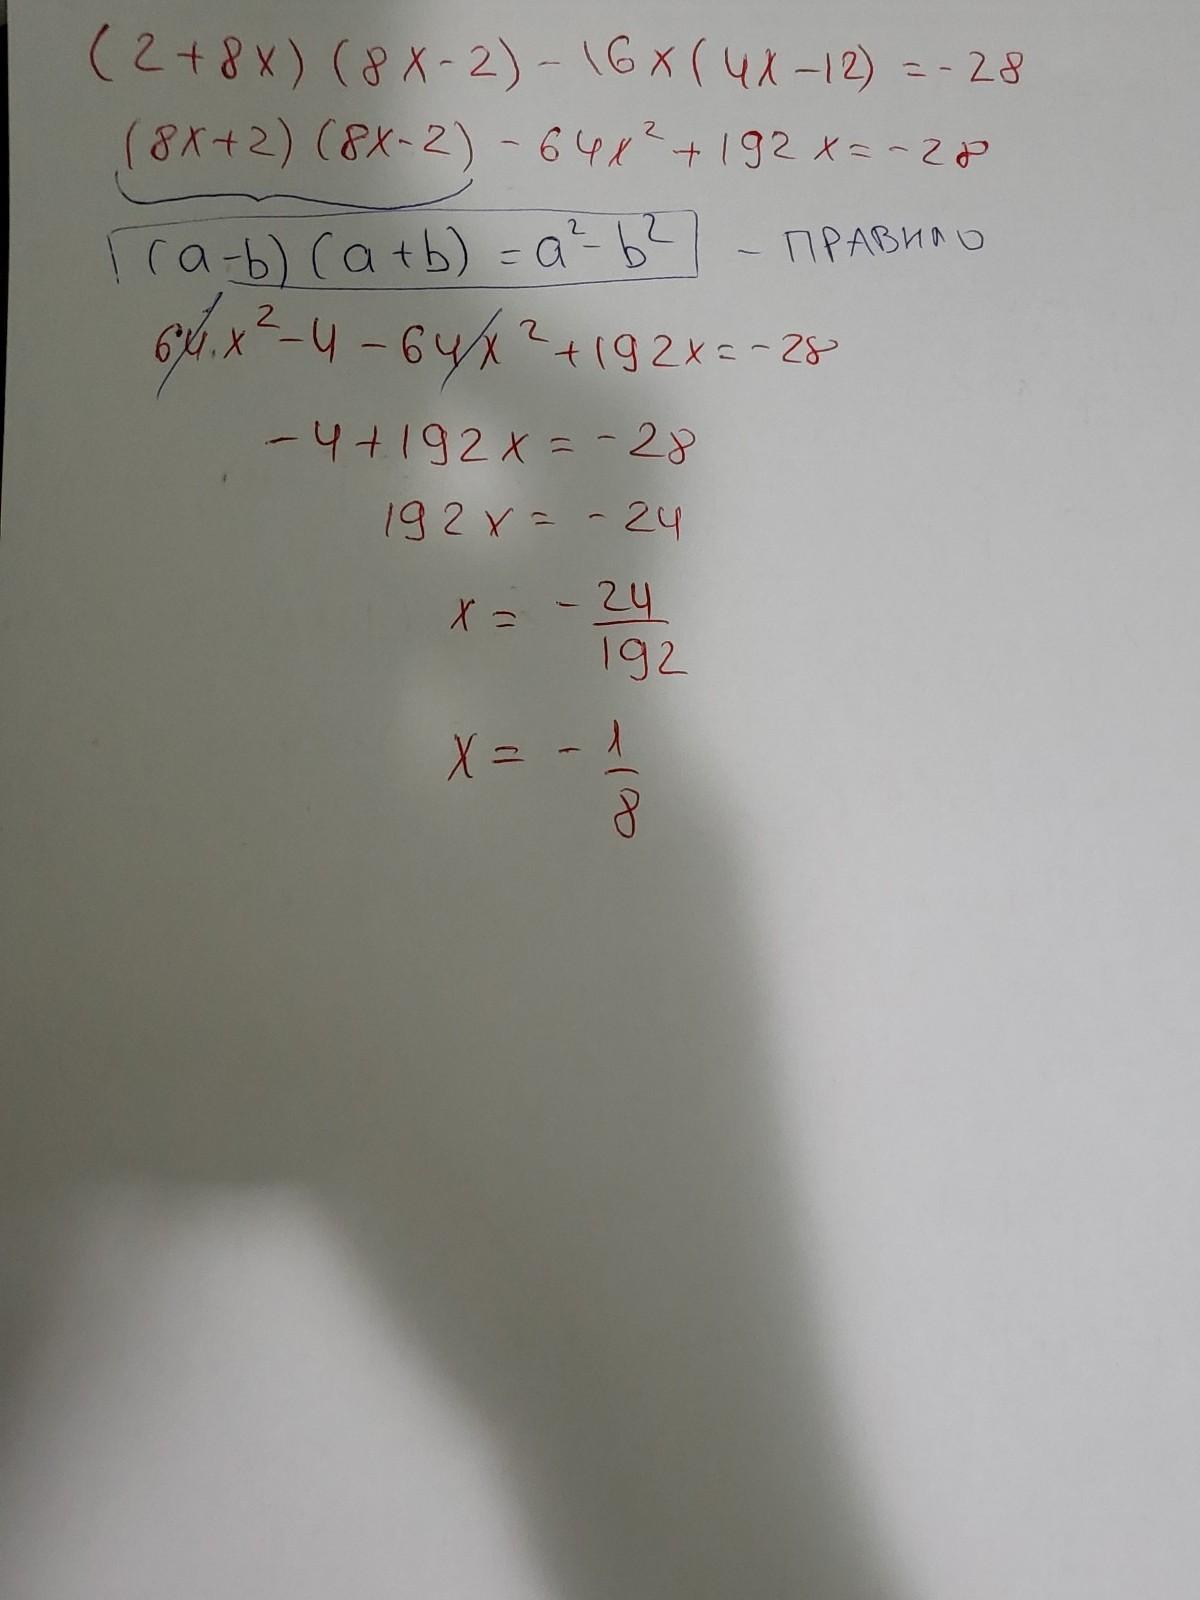 (2+8x)(8x-2)-16x(4x-12)=-28
(8x+2)(8x-2)-64x²+192x=-28
(a-b)(a+b)=a²-b² - ПРАВИЛО
64x²-4-64x²+192x=-28
-4+192x=-28
192x=-24
x=-24/192
x=-1/8